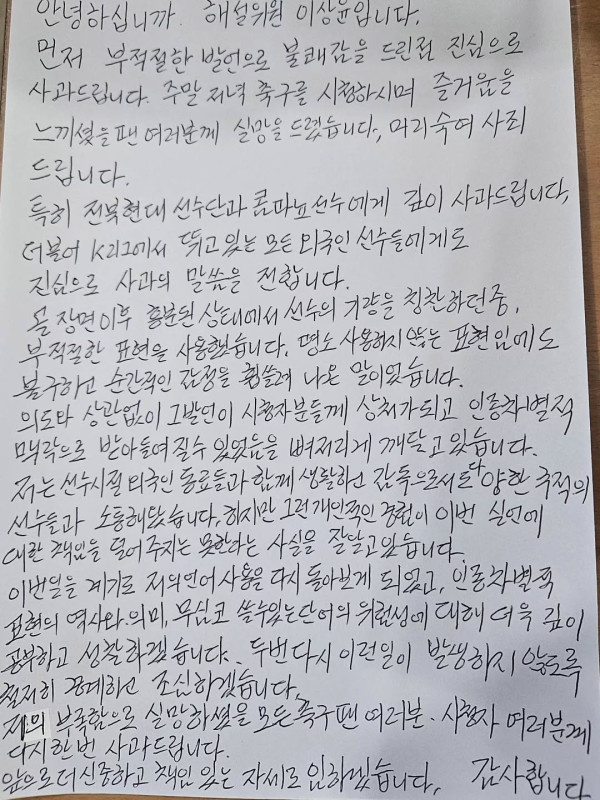 안녕하십니까. 해설위원 이상윤입니다.
먼저 부적절한 발언으로 불쾌감을 드린점 진심으로
사과드립니다. 주말 저녁 축구를 시청하시며 즐거움을
느끼셨을 팬 여러분께 실망을 드렸습니다, 머리숙여 사죄
드립니다.
특히 전북현대 선수단과 콤파뇨선수에게 깊이 사과드립니다,
더불어 K리그에서 뛰고 있는 모든 외국인 선수들에게도
진심으로 사과의 말씀을 전합니다.
골 장면이후 흥분된 상태에서 선수의 기량을 칭찬하던중,
부적절한 표현을 사용했습니다. 평소 사용하지 않는 표현임에도
불구하고 순간적인 감정을 휩쓸려 나온 말이었습니다.
의도와 상관없이 그발언이 시청자분들께 상처가되고 인종차별적
맥락으로 받아들여 질수 있었음을 뼈저리게 깨닫고 있습니다.
저는 선수시절 외국인 동료들과 함께 생활하고 감독으로서도 다양한 국적의
선수들과 소통해왔습니다, 하지만 그런 개인적인 경험이 이번 실언에
대한 책임을 덜어 주지는 못한다는 사실을 잘알고 있습니다.
이번일을 계기로 저의언어 사용을 다시 돌아보게 되었고, 인종차별적
표현의 역사와 의미, 무심코 쓸수있는 단어의 위험성에 대해 더욱 깊이
공부하고 성찰하겠습니다. 두번다시 이런일이 발생하지 않도록
철저히 경계하고 조심하겠습니다.
저의 부족함으로 실망하셨을 모든축구팬 여러분. 시청자 여러분께
다시한번 사과드립니다.
앞으로 더 신중하고 책임 있는 자세로 임하겠습니다, 감사합니다